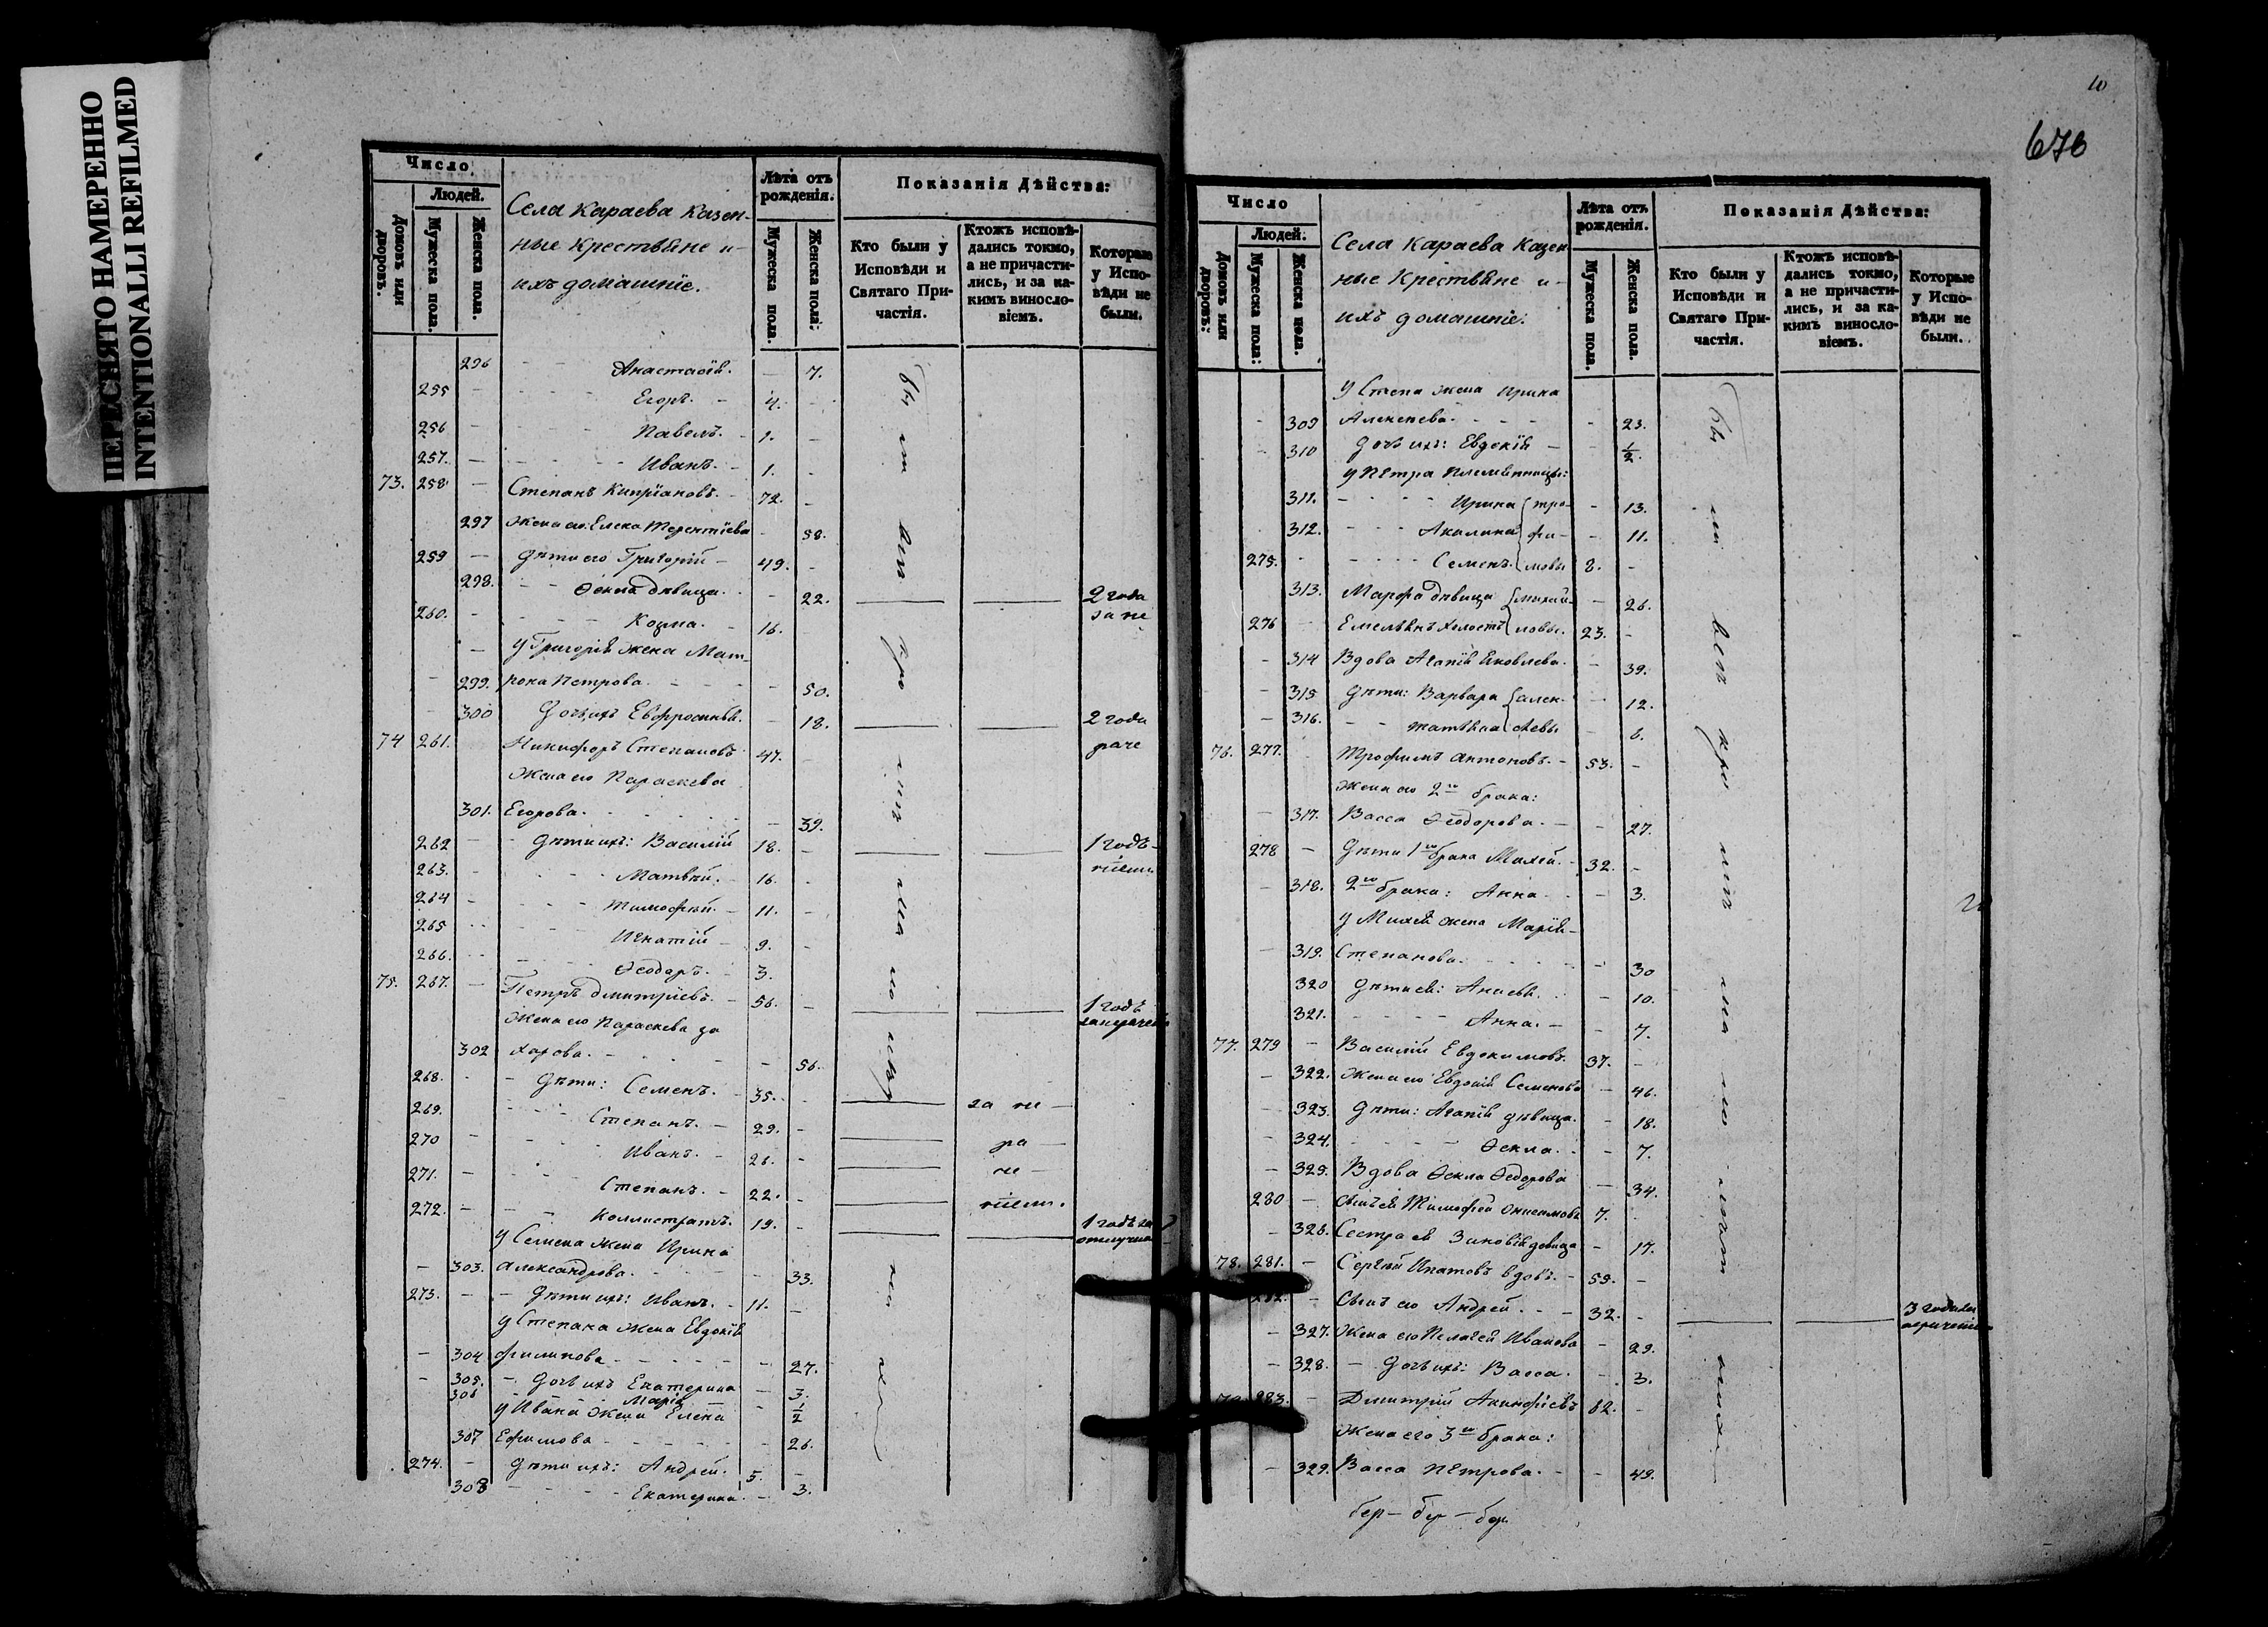 ПЕРЕСНЯТО НАМЕРЕННО
INTENTIONALLI REFILMED
Число
Людей.
Домовъ или дворовъ.
Мужеска пола.
Женска пола.
Села Караева Казен-
ные Крестьяне и
ихъ домашніе.
Лѣта отъ рожденія.
Мужеска пола.
Женска пола.
Показанія Дѣйства:
Кто были у Исповѣди и Святаго Причастія.
Ктожъ исповѣдались токмо, а не причастились, и за какимъ винословіемъ.
Которые у Исповѣди не были.
296 Анастасія. 7.
255 Егоръ. 4.
256 Павелъ. 1.
257. Иванъ. 1.
73. 258 Степанъ Кипріановъ. 72.
297 Жена его Елена Терентіева 58.
259 дѣти его Григорій 49.
298. Ѳекла дѣвица. 22. 2 года
260. Козма. 16.
у Григорія жена Мат-
299. рона Петрова. 50.
300 Дочь ихъ Евфросинья. 18. 2 года
74 261. Никифоръ Степановъ 47.
Жена его Параскева
301. Егорова. 39.
262 Дѣти ихъ: Василій 18. 1 годъ
263. Матвѣй. 16.
264 Тимофѣй. 11.
265 Игнатій 9.
266. Ѳеодоръ. 3.
75. 267. Петръ Дмитріевъ. 56. 1 годъ
Жена его Параскева За
302 харова. 56.
268. Дѣти: Семенъ. 35. за не
269. Степанъ. 29. ра
270 Иванъ. 26. че
271. Степанъ. 22. ніемъ.
272. Коллистратъ. 19. 1 годъ за
у Семена жена Ирина
303. Александрова. 33.
273. Дѣти ихъ: Иванъ. 11.
у Степана жена Евдокія
304 Филипова 27.
305. Дочь ихъ Екатерина 3.
306 Марія 1/2
у Ивана жена Елена
307 Ефимова 26.
274. Дѣти ихъ: Андрей. 5.
308 Екатерина. 3.
10
676
Число
Людей.
Домовъ или дворовъ:
Мужеска пола:
Женска пола.
Села Караева Казен
ные Крестьяне и
ихъ домашніе.
Лѣта отъ рожденія.
Мужеска пола.
Женска пола.
Показанія Дѣйства:
Кто были у Исповѣди и Святаго Причастія.
Ктожъ исповѣдались токмо, а не причастились, и за какимъ винословіемъ.
Которые у Исповѣди не были.
у Степа жена Ирина
309 Алексеева. 23.
310 Дочь ихъ: Евдокія 1/2.
у Петра племянницы:
311. Ирина тро- 13.
312. Акилина фи- 11.
275. Семенъ. мовы 8.
313. Марфа дѣвица михай- 26.
276 Емельянъ холостъ ловы. 23.
314 Вдова Агапія Яковлева. 39.
315 Дѣти: Варвара алек- 12.
316. татьяна сѣевы 6.
76. 277. Трофимъ Антоновъ. 53.
Жена его 2го брака:
317. Васса Ѳеодорова. 27.
278 Дѣти 1го брака Михей. 32.
318. 2го брака: Анна. 3.
у Михея жена Марія
319. Степанова. 30
320 Дѣти ея: 10.
321. Анна. 7.
77. 279 Василій Евдокимовъ. 37.
322. Жена его Евдокія Семенова 46.
323. Дѣти: Агапія дѣвица. 18.
324. Ѳекла. 7.
325. Вдова Ѳекла Ѳедорова 34.
280 Сынъ ея Тимофей Онисимовъ 7.
326. Сестра ея Зиновія дѣвица 17.
78. 281. Сергѣй Ипатовъ вдовъ. 59.
282. Сынъ его Андрей. 32. 3 года за
327. Жена его Пелагея Иванова 29.
328. Дочь ихъ: Васса. 3.
283. Дмитрій Акинфіевъ 62.
Жена его 3го брака:
329. Васса Петрова. 49.